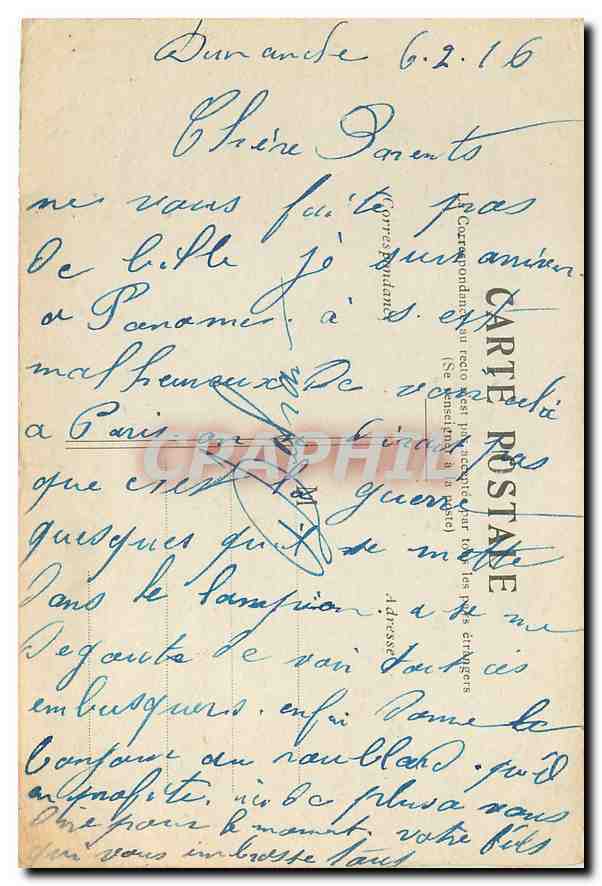 Dimanche 6.2.16
Chère Parents
ne vous faite pas
de bille je suis arriver
a Paname. à s est
malheureux de voir cela
a Paris on ne dirait pas
que c'est la guerre
quesques qu'il se mette
dans le lampion. a se me
degoute de voir tout ces
embusquers. enfin donne le
bonjour au roublard. qu'il
en profite. rien de plus a vous
dire pour le moment. votre fils
qui vous imbrasse tous
CARTE POSTALE
La Correspondance au recto n'est pas acceptée par tous les pays étrangers
(Se renseigner à la poste)
Correspondance
Adresse
M
CPAPHIL